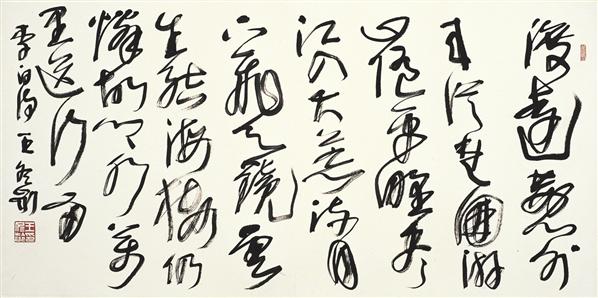 渡遠荊門外
来從楚國游
山随平野尽
江入大荒流月
下飛天鏡雲
生結海楼仍
憐故鄉水萬
里送行舟
李白詩 王冬齡